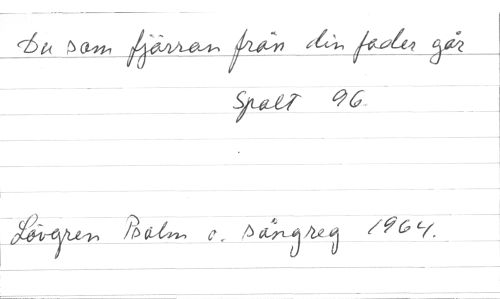 Du som fjärran från din fader går
Spalt 96.
Lövgren Psalm o. sångreg 1964.